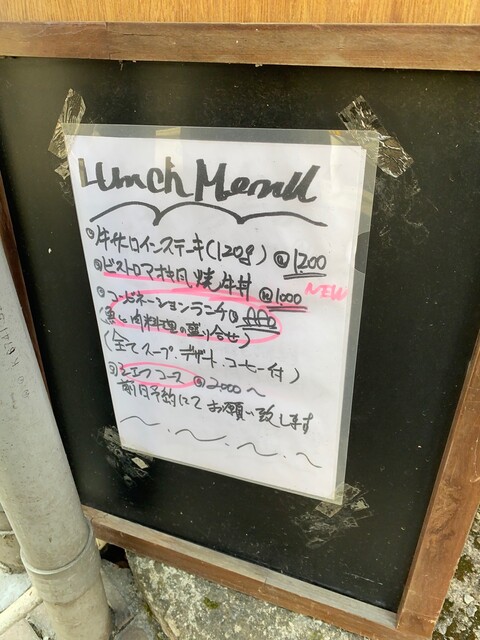 Lunch Menu
牛サーロインステーキ(120g) @1200
ビストロマオ風焼牛丼 @1000 NEW
コンビネーションランチ@
(魚と肉料理の盛り合せ)
(全てスープ・デザート・コーヒー付)
シェフコース @2000〜
前日予約にてお願い致します